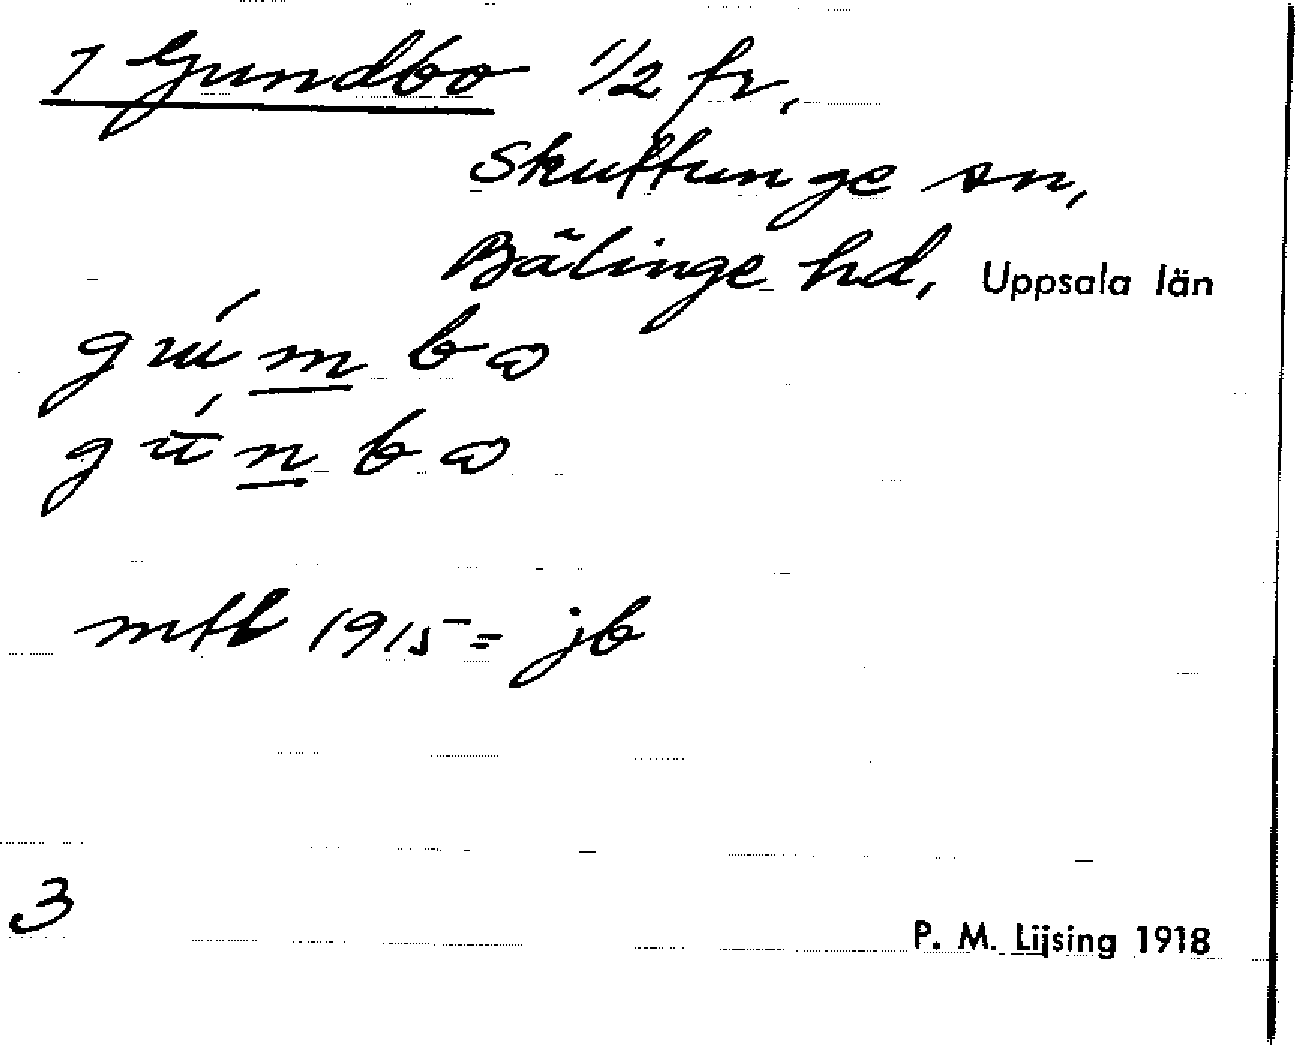 1 Gundbo 1/2 fr,
Skuttunge sn,
Bälinge hd, Uppsala län
gúmbɷ
gū́nbɷ
mtl 1915 = jb
3
P. M. Lijsing 1918